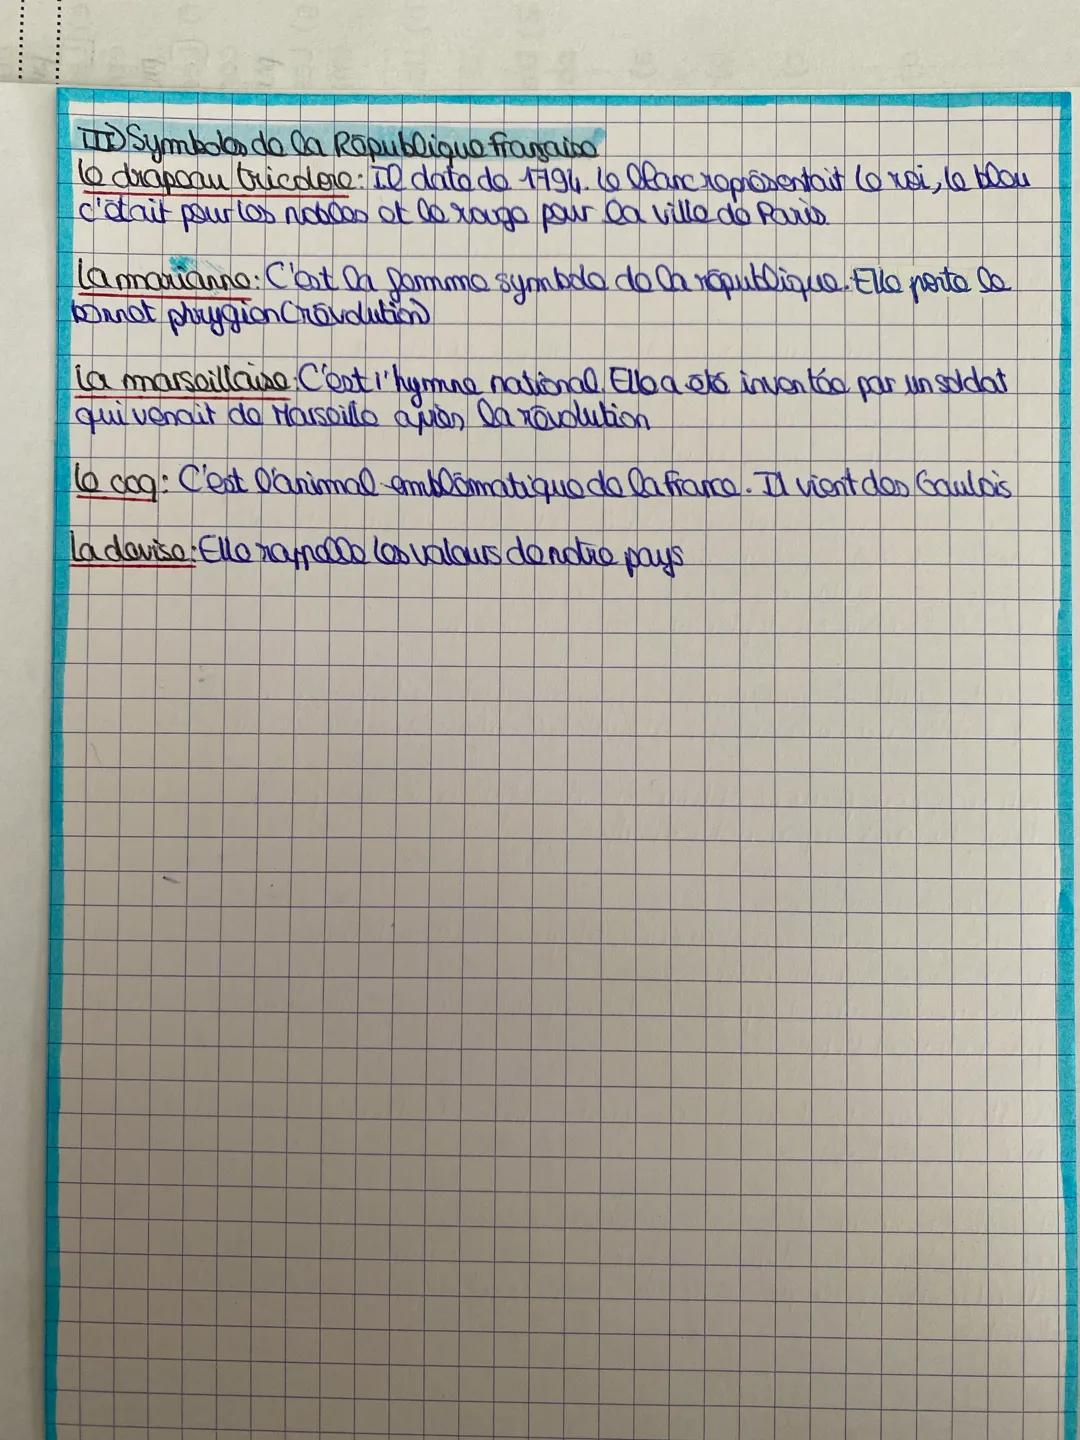 III) Symboles de la République française
le drapeau tricolore: Il date de 1794. le blanc représentait le roi, le bleu
c'était pour les nobles et le rouge pour la ville de Paris.
la marianne: C'est la femme symbole de la république. Elle porte le
bonnet phrygien (révolution)
la marseillaise: C'est l'hymne national. Elle a été inventée par un soldat
qui venait de Marseille après la révolution
le coq: C'est l'animal emblématique de la france. Il vient des Gaulois
la devise: Elle rappelle les valeurs de notre pays